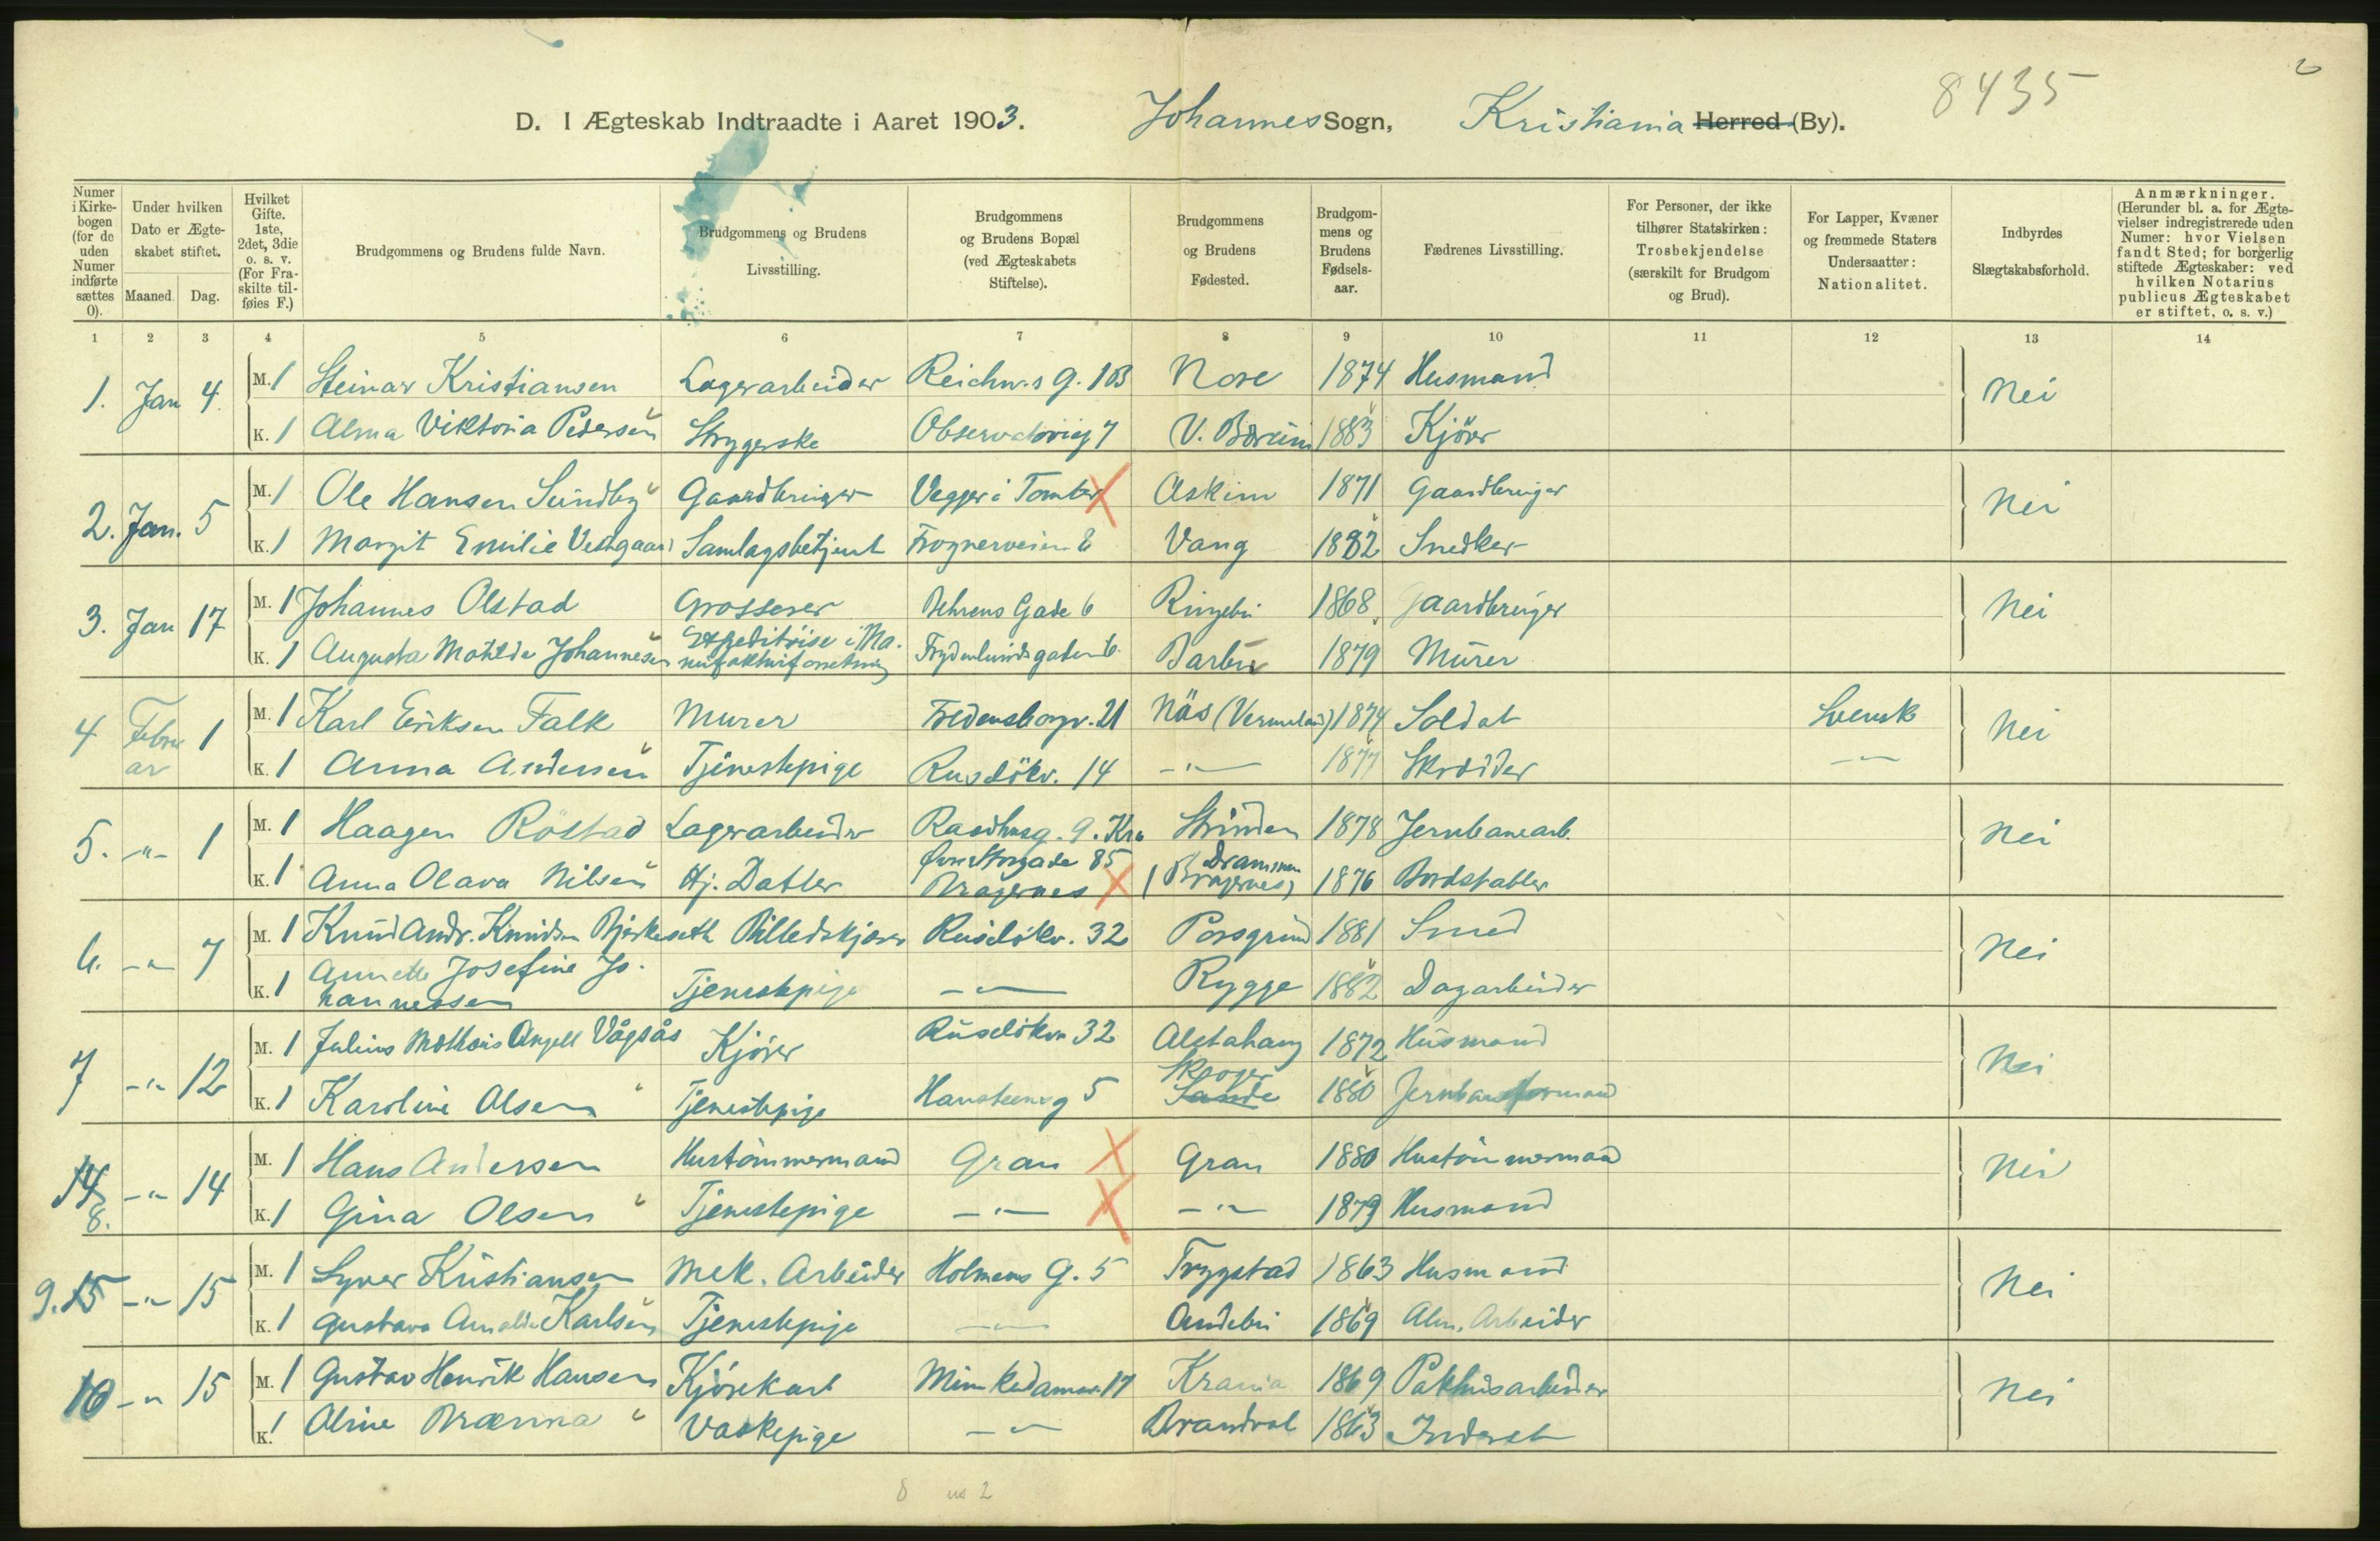 8435
D. I Ægteskab Indtraadte i Aaret 1903. Johannes Sogn, Kristiania Herred (By).
Numer i Kirkebogen (for de uden Numer indførte sættes 0).
Under hvilken Dato er Ægteskabet stiftet.
Maaned. Dag.
Hvilket Gifte. 1ste, 2det, 3die o. s. v. (For Fraskilte tilføies F.)
Brudgommens og Brudens fulde Navn.
Brudgommens og Brudens Livsstilling.
Brudgommens og Brudens Bopæl (ved Ægteskabets Stiftelse).
Brudgommens og Brudens Fødested.
Brudgommens og Brudens Fødselsaar.
Fædrenes Livsstilling.
For Personer, der ikke tilhører Statskirken: Trosbekjendelse (særskilt for Brudgom og Brud).
For Lapper, Kvæner og fremmede Staters Undersaatter: Nationalitet.
Indbyrdes Slægtskabsforhold.
Anmærkninger. (Herunder bl. a. for Ægtevielser indregistrerede uden Numer: hvor Vielsen fandt Sted; for borgerlig stiftede Ægteskaber: ved hvilken Notarius publicus Ægteskabet er stiftet, o. s. v.)
1 2 3 4 5 6 7 8 9 10 11 12 13 14
1. Jan 4. M. 1 Steinar Kristiansen Lagerarbeider Nore 1874 Husmand Nei
K. 1 Alma Viktoria Pedersen Strygerske Observatorieg 7 V. Bærum 1883 Kjører
2. Jan. 5 M. 1 Ole Hansen Sundby Gaardbruger Vegger i Tomter X Askim 1871 Gaardbruger Nei
K. 1 Margit Emilie Vestgaard Samlagsbetjent Frognerveien 2 Vang 1882 Snedker
3. Jan 17 M. 1 Johannes Olstad Grosserer Behrens Gade 6 Ringebu 1868. Gaardbruger Nei
K. 1 Augusta Matilde Johannesen Expeditrise i Manufakturforretning Frydenlundsgaten 6 Barbu 1879 Murer
4 Februar 1 M. 1 Karl Eriksen Falk Murer Fredensborgv. 21 Näs (Vermeland) 1874 Soldat Svensk Nei
K. 1 Anna Andersen Tjenestepige Ruseløkv. 14 -"- 1877 Skrædder -"-
5. -"- 1 M. 1 Haagen Röstad Lagerarbeider Raadhusg. 9. Kra Strinden 1878 Jernbanearb. Nei
K. 1 Anna Olava Nilsen Hj. Datter Øvre Storgade 85 Bragernes X Drammen (Bragernes) 1876 Bordstabler
6. -"- 7 M. 1 Knud Andr. Knudsen Bjerkeseth Billedskjærer Ruseløkv. 32 Porsgrund 1881 Smed Nei
K. 1 Annette Josefine Johannessen Tjenestepige -"- Rygge 1882 Dagarbeider
7 -"- 12 M. 1 Julius Mathias Angell Vågsås Kjører Ruseløkv 32 Alstahaug 1872 Husmand Nei
K. 1 Karoline Olsen Tjenestepige Hansteensg 5 Skoger Sande 1880 Jernbaneformand
14 8. -"- 14 M. 1 Hans Andersen Hustømmermand Gran X Gran 1880 Hustømmermand Nei
K. 1 Gina Olsen Tjenestepige -"- X -"- 1879 Husmand
9. 15 -"- 15 M. 1 Syver Kristiansen Mek. Arbeider Holmens G. 5 Trygstad 1863 Husmand Nei
K. 1 Gustava Amalie Karlsen Tjenestepige -"- Andebu 1869 Alm. Arbeider
10 -"- 15 M. 1 Gustav Henrik Hansen Kjørekarl Munkedamsv 17 Krania 1869 Pakhusarbeider Nei
K. 1 Vaskepige -"- Brandval 1863 Inderst